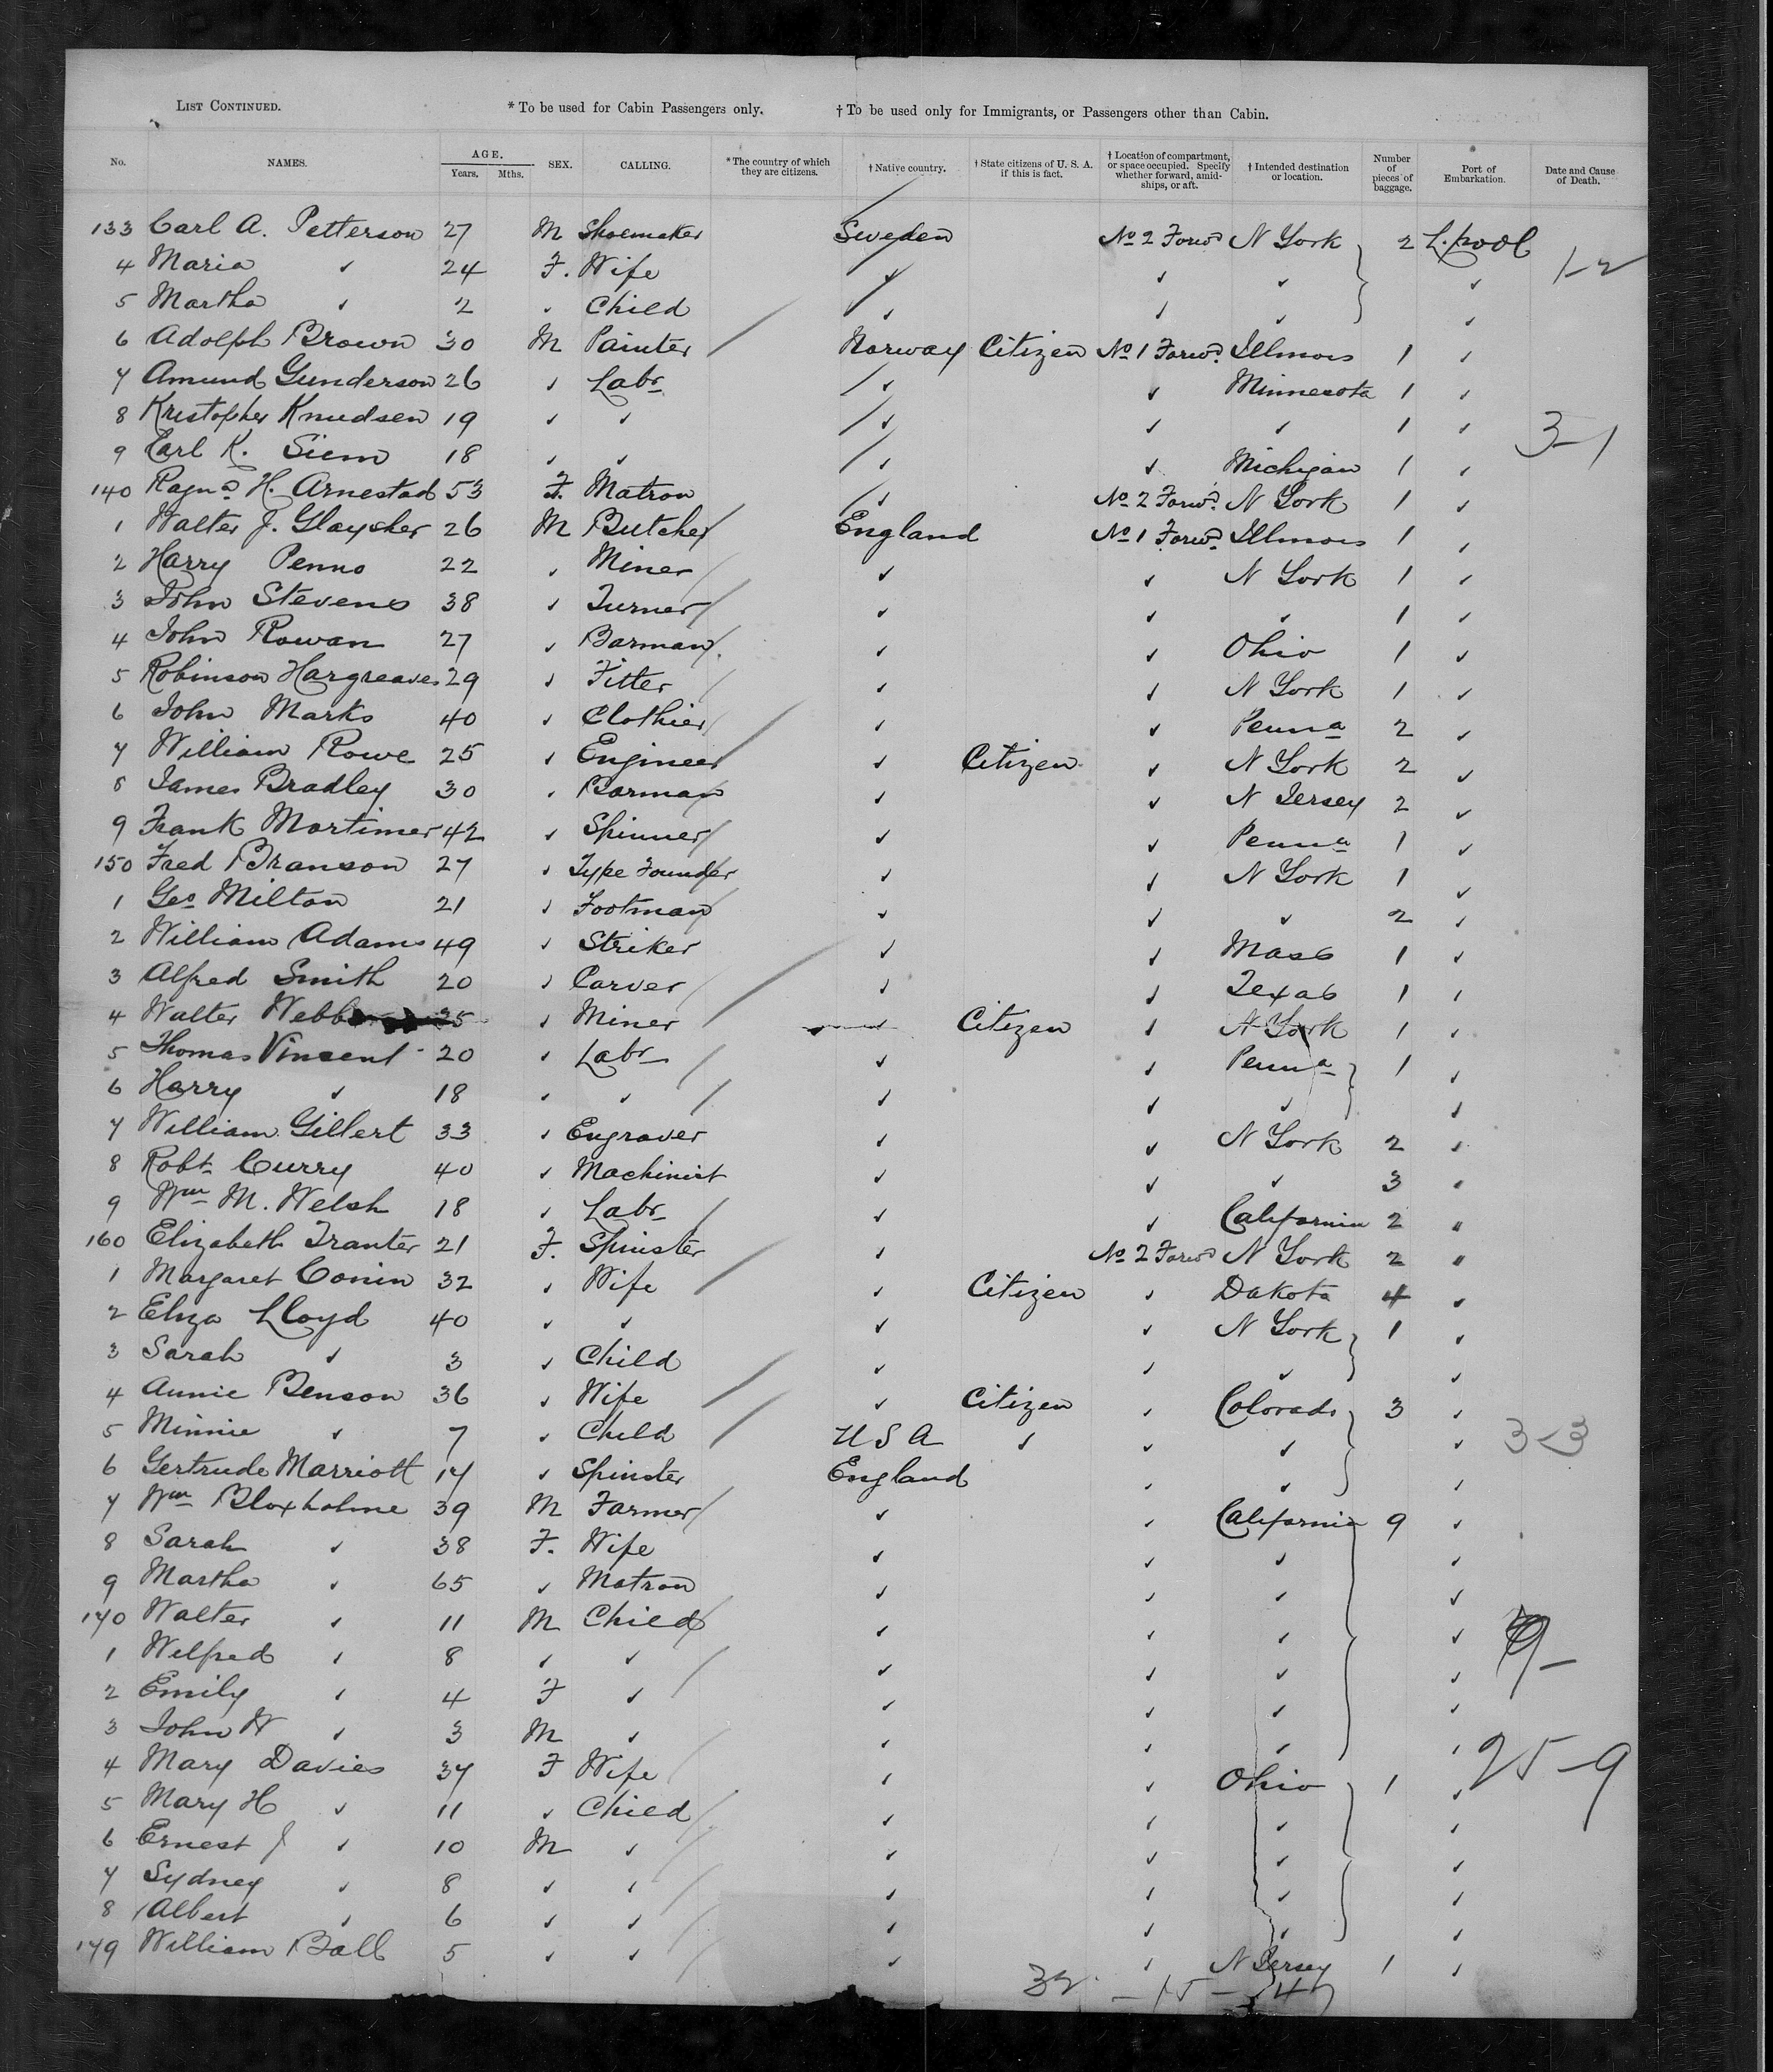 LIST CONTINUED. * To be used for Cabin Passengers only. † To be used only for Immigrants, or Passengers other than Cabin.
No. NAMES. AGE. Years. Mths. SEX. CALLING. * The country of which they are citizens. † Native country. † State citizens of U. S. A. if this is fact. † Location of compartment, or space occupied. Specify whether forward, amidships, or aft. † Intended destination or location. Number of pieces of baggage. Port of Embarkation. Date and Cause of Death.
133 Carl A. Petterson 27 M Shoemaker Sweden No 2 Forwd N York 2 L.pool
4 Maria ✓ 24 F. Wife ✓ ✓ ✓ ✓ 1-2
5 Martha ✓ 2 ✓ Child ✓ ✓ ✓ ✓
6 Adolph Brown 30 M Painter Norway Citizen No 1 Forwd Illinois 1 ✓
7 Amund Gunderson 26 ✓ Labr ✓ ✓ Minnesota 1 ✓
8 Kristopher Knudsen 19 ✓ ✓ ✓ ✓ ✓ 1 ✓ 3-1
9 Carl K. Siem 18 ✓ ✓ ✓ ✓ Michigan 1 ✓
140 Ragna H. Arnestad 53 F. Matron ✓ No 2 Forwd N York 1 ✓
1 Walter J. Glaysher 26 M Butcher England No 1 Forwd Illinois 1 ✓
2 Harry Penno 22 ✓ Miner ✓ ✓ N York 1 ✓
3 John Stevens 38 ✓ Turner ✓ ✓ ✓ 1 ✓
4 John Rowan 27 ✓ Barman ✓ ✓ Ohio 1 ✓
5 Robinson Hargreaves 29 ✓ Fitter ✓ ✓ N York 1 ✓
6 John Marks 40 ✓ Clothier ✓ ✓ Penna 2 ✓
7 William Rowe 25 ✓ Engineer ✓ Citizen ✓ N York 2 ✓
8 James Bradley 30 ✓ Barman ✓ ✓ N Jersey 2 ✓
9 Frank Mortimer 42 ✓ Spinner ✓ ✓ Penna 1 ✓
150 Fred Branson 27 ✓ Type Founder ✓ ✓ N York 1 ✓
1 Geo Milton 21 ✓ Footman ✓ ✓ ✓ 2 ✓
2 William Adams 49 ✓ Striker ✓ ✓ Mass 1 ✓
3 Alfred Smith 20 ✓ Carver ✓ ✓ Texas 1 ✓
4 Walter Webb 25 ✓ Miner ✓ Citizen ✓ N York 1 ✓
5 Thomas Vincent 20 ✓ Labr ✓ ✓ Penna 1 ✓
6 Harry ✓ 18 ✓ ✓ ✓ ✓ ✓ ✓
7 William Gillert 33 ✓ Engraver ✓ ✓ N York 2 ✓
8 Robt Curry 40 ✓ Machinist ✓ ✓ ✓ 3 "
9 Wm M. Welsh 18 ✓ Labr ✓ ✓ California 2 "
160 Elizabeth Tranter 21 F. Spinster ✓ No 2 Forwd N York 2 "
1 Margaret Conin 32 ✓ Wife ✓ Citizen ✓ Dakota 4 ✓
2 Eliza Lloyd 40 ✓ ✓ ✓ ✓ N York 1 ✓
3 Sarah ✓ 3 ✓ Child ✓ ✓ ✓ ✓
4 Annie Benson 36 ✓ Wife ✓ Citizen ✓ Colorado 3 ✓
5 Minnie ✓ 7 ✓ Child U S A ✓ ✓ ✓ ✓ 3-3
6 Gertrude Marriott 17 ✓ Spinster England ✓ ✓ ✓
7 Wm Bloxholme 39 M Farmer ✓ ✓ California 9 ✓
8 Sarah ✓ 38 F. Wife ✓ ✓ ✓ ✓
9 Martha ✓ 65 ✓ Matron ✓ ✓ ✓ ✓
170 Walter ✓ 11 M Child ✓ ✓ ✓ ✓
1 Wilfred ✓ 8 ✓ ✓ ✓ ✓ ✓ ✓
2 Emily ✓ 4 F ✓ ✓ ✓ ✓ ✓
3 John W ✓ 3 M ✓ ✓ ✓ ✓ ✓
4 Mary Davies 37 F Wife ✓ ✓ Ohio 1 ✓ 25-9
5 Mary H ✓ 11 ✓ Child ✓ ✓ ✓ ✓
6 Ernest J ✓ 10 M ✓ ✓ ✓ ✓ ✓
7 Sydney ✓ 8 ✓ ✓ ✓ ✓ ✓ ✓
8 Albert ✓ 6 ✓ ✓ ✓ ✓ ✓ ✓
179 William Ball 5 ✓ ✓ ✓ ✓ N Jersey 1 ✓
32 - 15 - 47